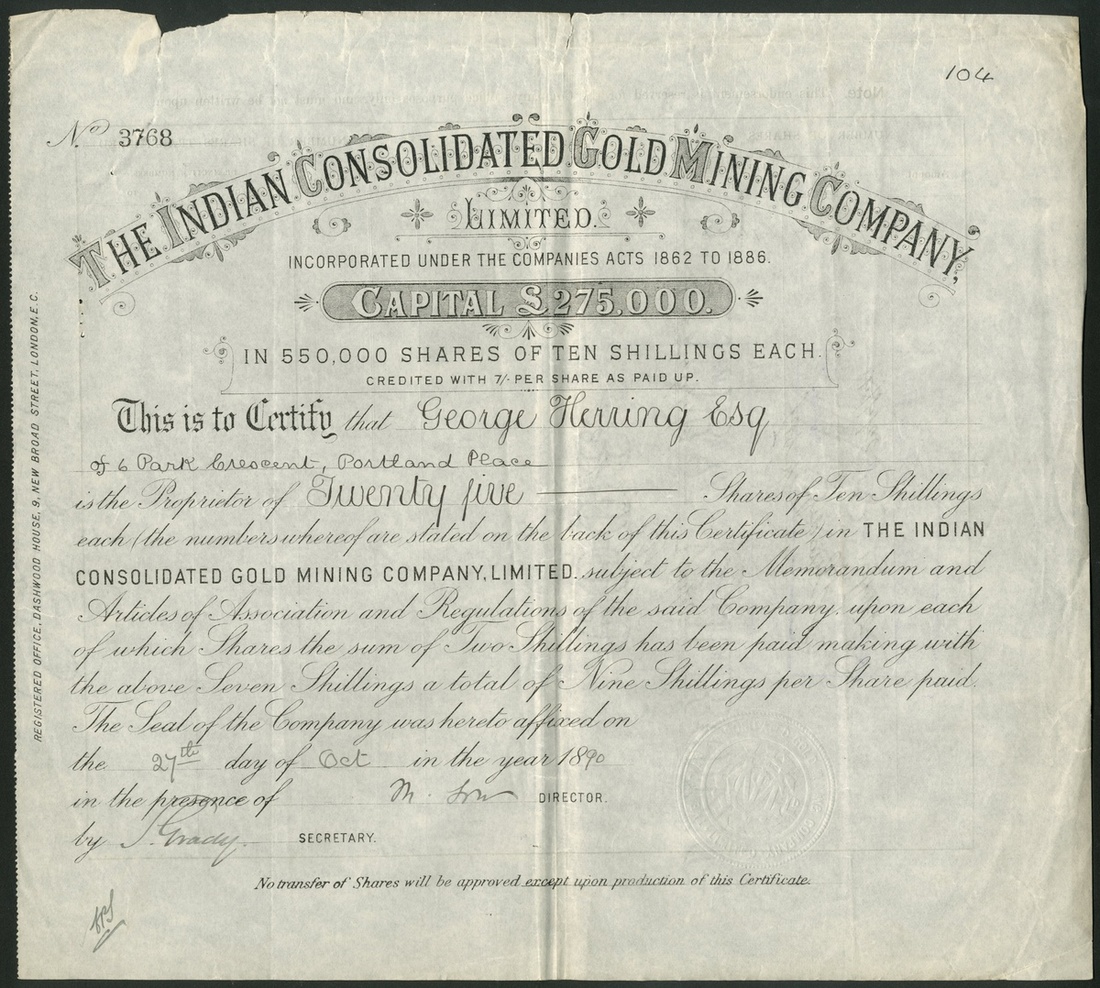 104
No 3768
THE INDIAN CONSOLIDATED GOLD MINING COMPANY,
LIMITED.
INCORPORATED UNDER THE COMPANIES ACTS 1862 TO 1886.
CAPITAL £275.000.
IN 550,000 SHARES OF TEN SHILLINGS EACH.
CREDITED WITH 7/- PER SHARE AS PAID UP.
This is to Certify that George Herring Esq
of 6 Park Crescent, Portland Place
is the Proprietor of Twenty five Shares of Ten Shillings
each (the numbers whereof are stated on the back of this Certificate) in THE INDIAN
CONSOLIDATED GOLD MINING COMPANY, LIMITED. subject to the Memorandum and
Articles of Association and Regulations of the said Company, upon each
of which Shares the sum of Two Shillings has been paid making with
the above Seven Shillings a total of Nine Shillings per Share paid.
The Seal of the Company was hereto affixed on
the 27th day of Oct in the year 1890
in the presence of M. DIRECTOR.
by J. Grady SECRETARY.
No transfer of Shares will be approved except upon production of this Certificate.
REGISTERED OFFICE, DASHWOOD HOUSE, 9, NEW BROAD STREET, LONDON, E.C.